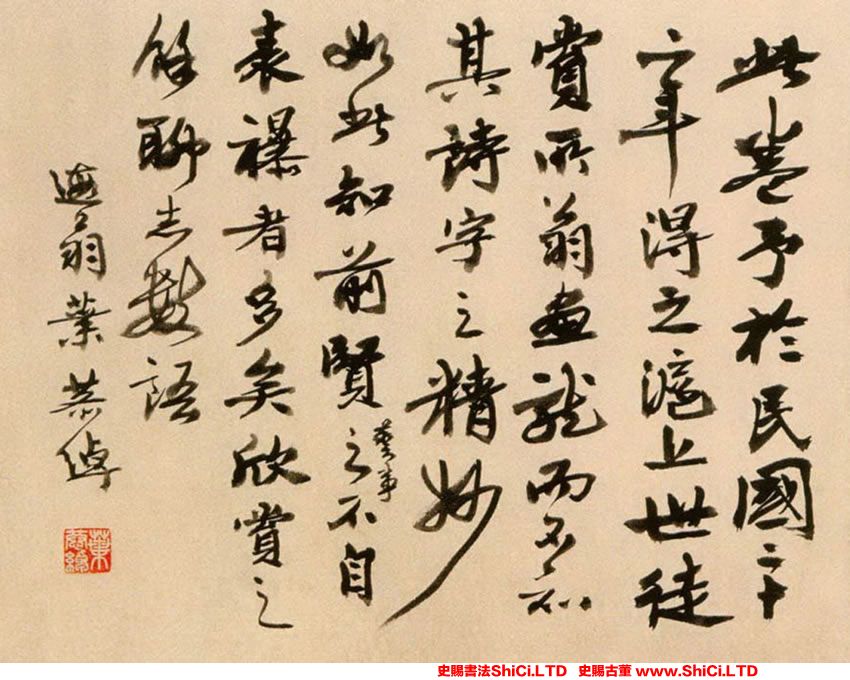 此卷予於民國二十
二年得之滬上世徒
賞所翁畫龍而不知
其詩字之精妙
如此知前賢藝事之不自
表襮者多矣欣賞之
餘聊志數語
遐翁葉恭綽
葉恭綽
史賜書法ShiCi.LTD 史賜古董 www.ShiCi.LTD